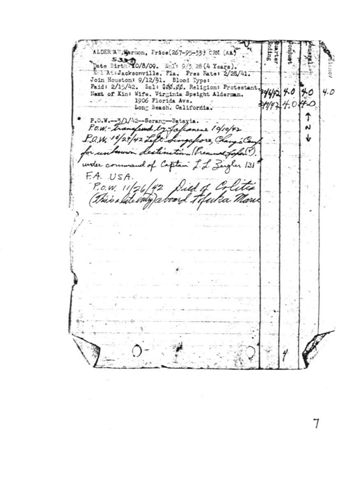 Vernon, Price (267-95-33) CRM (AA)
Date Birth: 10/8/09. 9/3/28 (4 Years).
At: Jacksonville, Fla. Pres Rate: 2/28/41.
Join Houston: 9/12/31. Blood Type:
Paid: 2/15/42. Bal: Religion: Protestant
Next of Kin: Wife, Virginia Speight Alderman.
1906 Florida Ave.
Long Beach, California.
4.0 4.0 4.0
4.0 4.0
P.O.W.--3/1/42--Serang--Batavia.
P.O.W. Transferred by Japanese 10/10/42
P.O.W. 10/27/42 Left Singapore, Changi Camp
for unknown destination (Presumed Japan?)
under command of Captain Zeigler 131
F.A. USA.
P.O.W. 11/26/42 Died of Colitis
aboard Maru
N
7